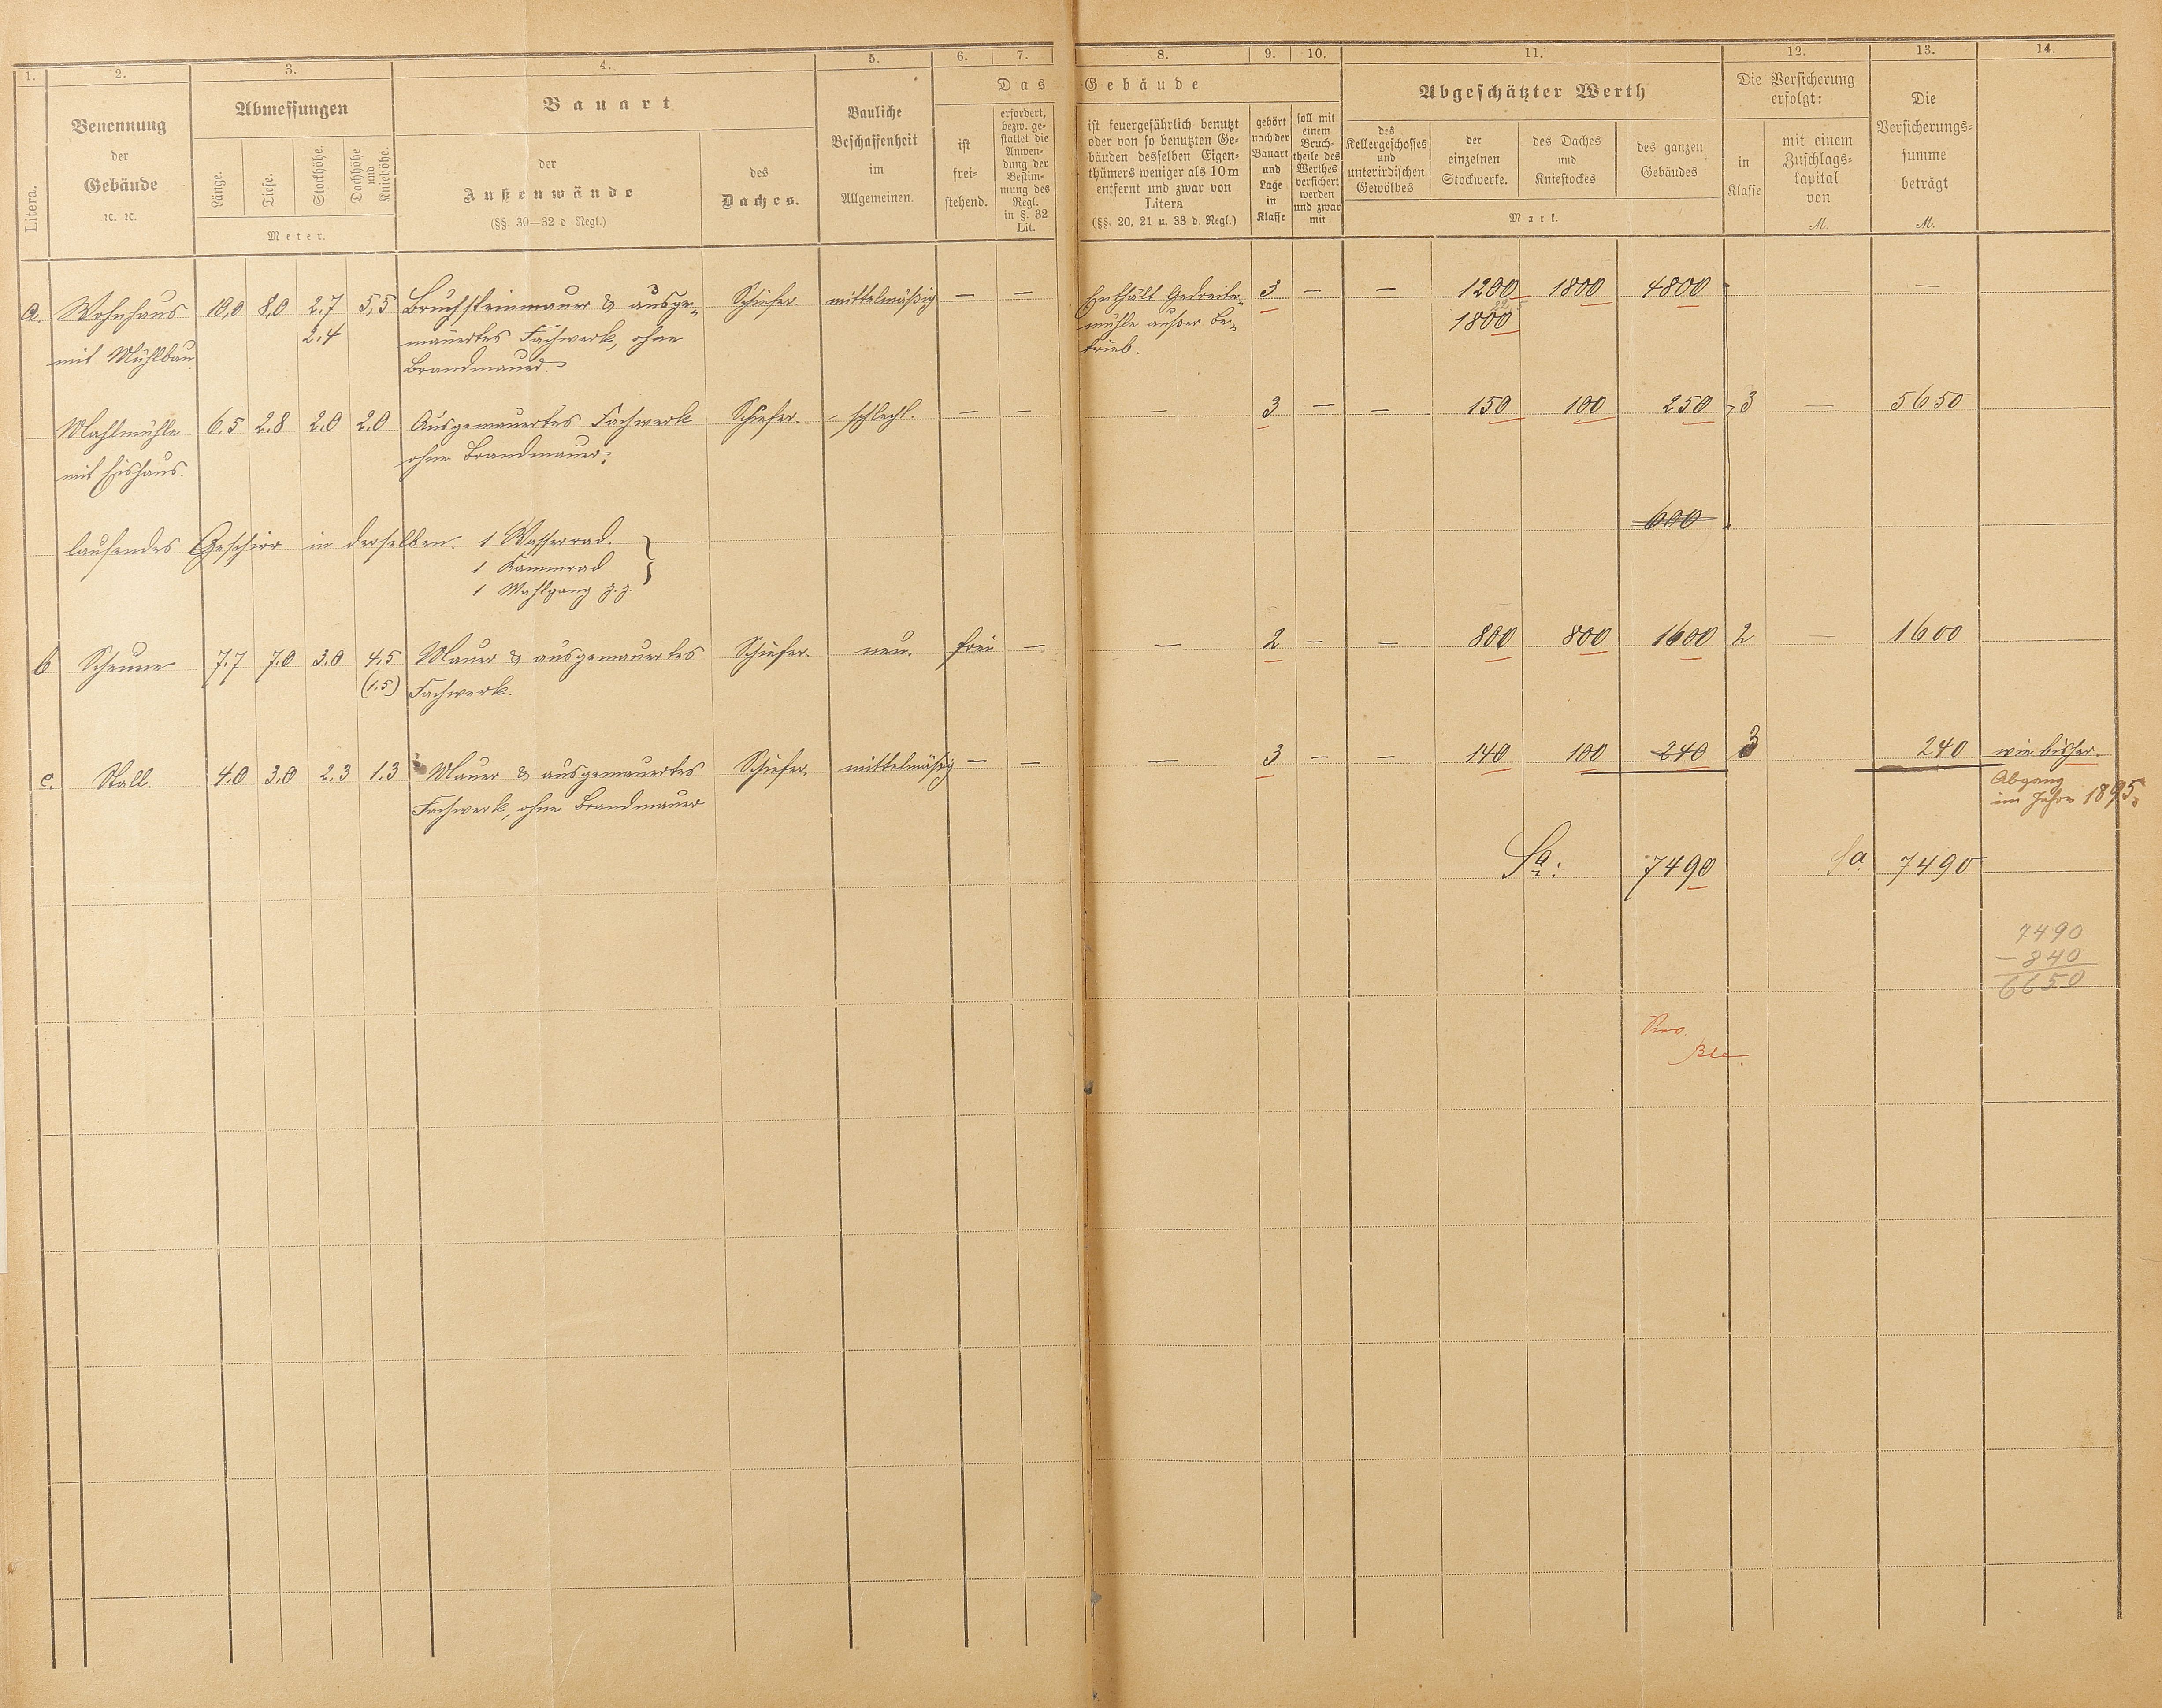 1.
2.
3.
4.
5.
6.
7.
8.
9.
10.
11.
12.
13.
14.
Litera.
Benennung
der
Gebäude
ꝛc. ꝛc.
Abmessungen
Länge.
Tiefe.
Stockhöhe.
Dachhöhe
und
Kniehöhe.
Meter.
Bauart
der
Außenwände
(§§. 30—32 d Regl.)
des
Daches.
Bauliche
Beschaffenheit
im
Allgemeinen.
Das Gebäude
ist
frei-
stehend.
erfordert,
bezw. ge-
stattet die
Anwen-
dung der
Bestim-
mung des
Regl.
in §. 32
Lit.
ist feuergefährlich benutzt
oder von so benutzten Ge-
bäuden desselben Eigen-
thümers weniger als 10 m
entfernt und zwar von
Litera
(§§. 20, 21 u. 33 d. Regl.)
gehört
nach der
Bauart
und
Lage
in
Klasse
soll mit
einem
Bruch-
theile des
Werthes
versichert
werden
und zwar
mit
Abgeschätzter Werth
des
Kellergeschosses
und
unterirdischen
Gewölbes
der
einzelnen
Stockwerke.
des Daches
und
Kniestockes
des ganzen
Gebäudes
Mark.
Die Versicherung
erfolgt:
in
Klasse
mit einem
Zuschlags-
kapital
von
M.
Die
Versicherungs-
summe
beträgt
M.
a. Wohnhaus 10,0 8,0 2.7 5,5 Bruchsteinmauer & ausge- Schiefer. mittelmäßig — — Enthält Getreide- 3 — — 1200 1800 4800
mit Mühlbau. 2.4 mauertes Fachwerk, ohne mühle außer Be- 1800
Brandmauer. trieb.
Mahlmühle 6.5 2.8 2.0 2.0 Ausgemauertes Fachwerk Schiefer. schlecht. — — — 3 — — 150 100 250 3 — 5650
mit Eishaus. ohne Brandmauer.
laufendes Geschirr in derselben. 1 Wasserrad. 600
1 Kammrad
1 Mahlgang
b Scheune 7.7 7.0 3.0 4.5 Mauer & ausgemauertes Schiefer. neu. frei — — 2 — — 800 800 1600 2 — 1600
(1.5) Fachwerk.
c. Stall 4.0 3.0 2.3 1.3 Mauer & ausgemauertes Schiefer. mittelmäßig — — — 3 — — 140 100 240 3 240 wie bisher.
Fachwerk, ohne Brandmauer Abgang
im Jahre 1895.
Sa: 7490 Sa. 7490
7490
— 840
6650
Rev.